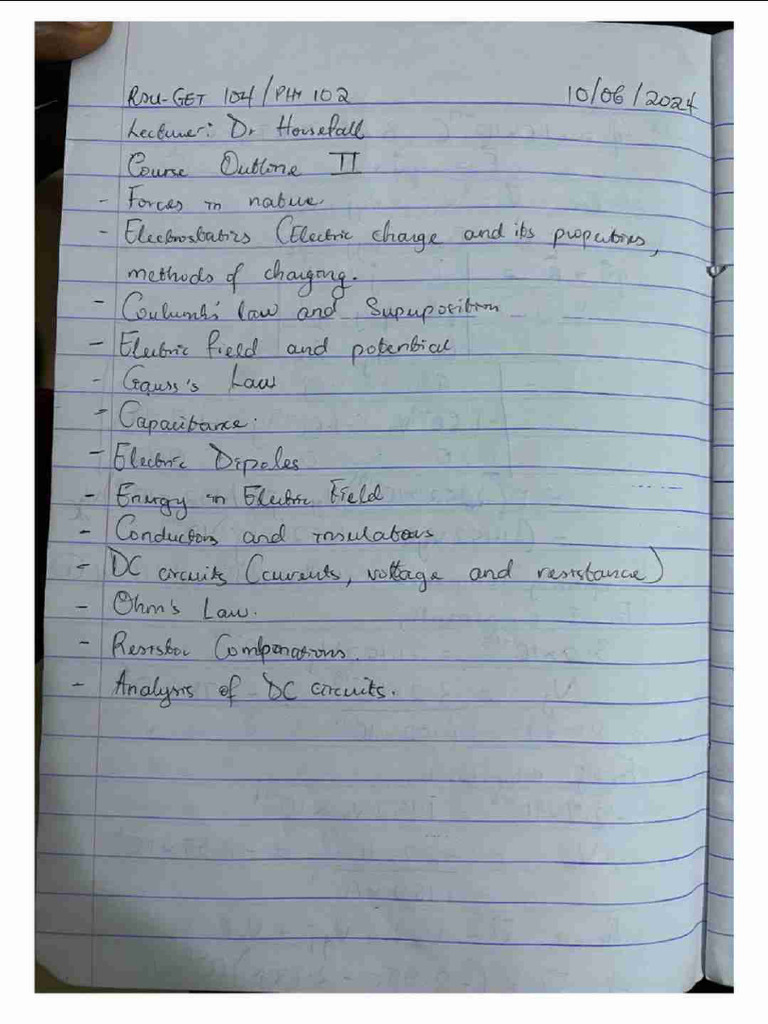 RSU-GET 104/PHY 102 10/06/2024
Lecturer: Dr Housefall
Course Outline II
- Forces in nature
- Electrostatics (Electric charge and its properties,
methods of charging.
- Coulumb's law and Superposition
- Electric field and potential
- Gauss's Law
- Capacitance.
- Electric Dipoles
- Energy in Electric Field
- Conductors and insulators
- DC circuits (currents, voltage and resistance)
- Ohm's Law.
- Resistor Combinations.
- Analysis of DC circuits.